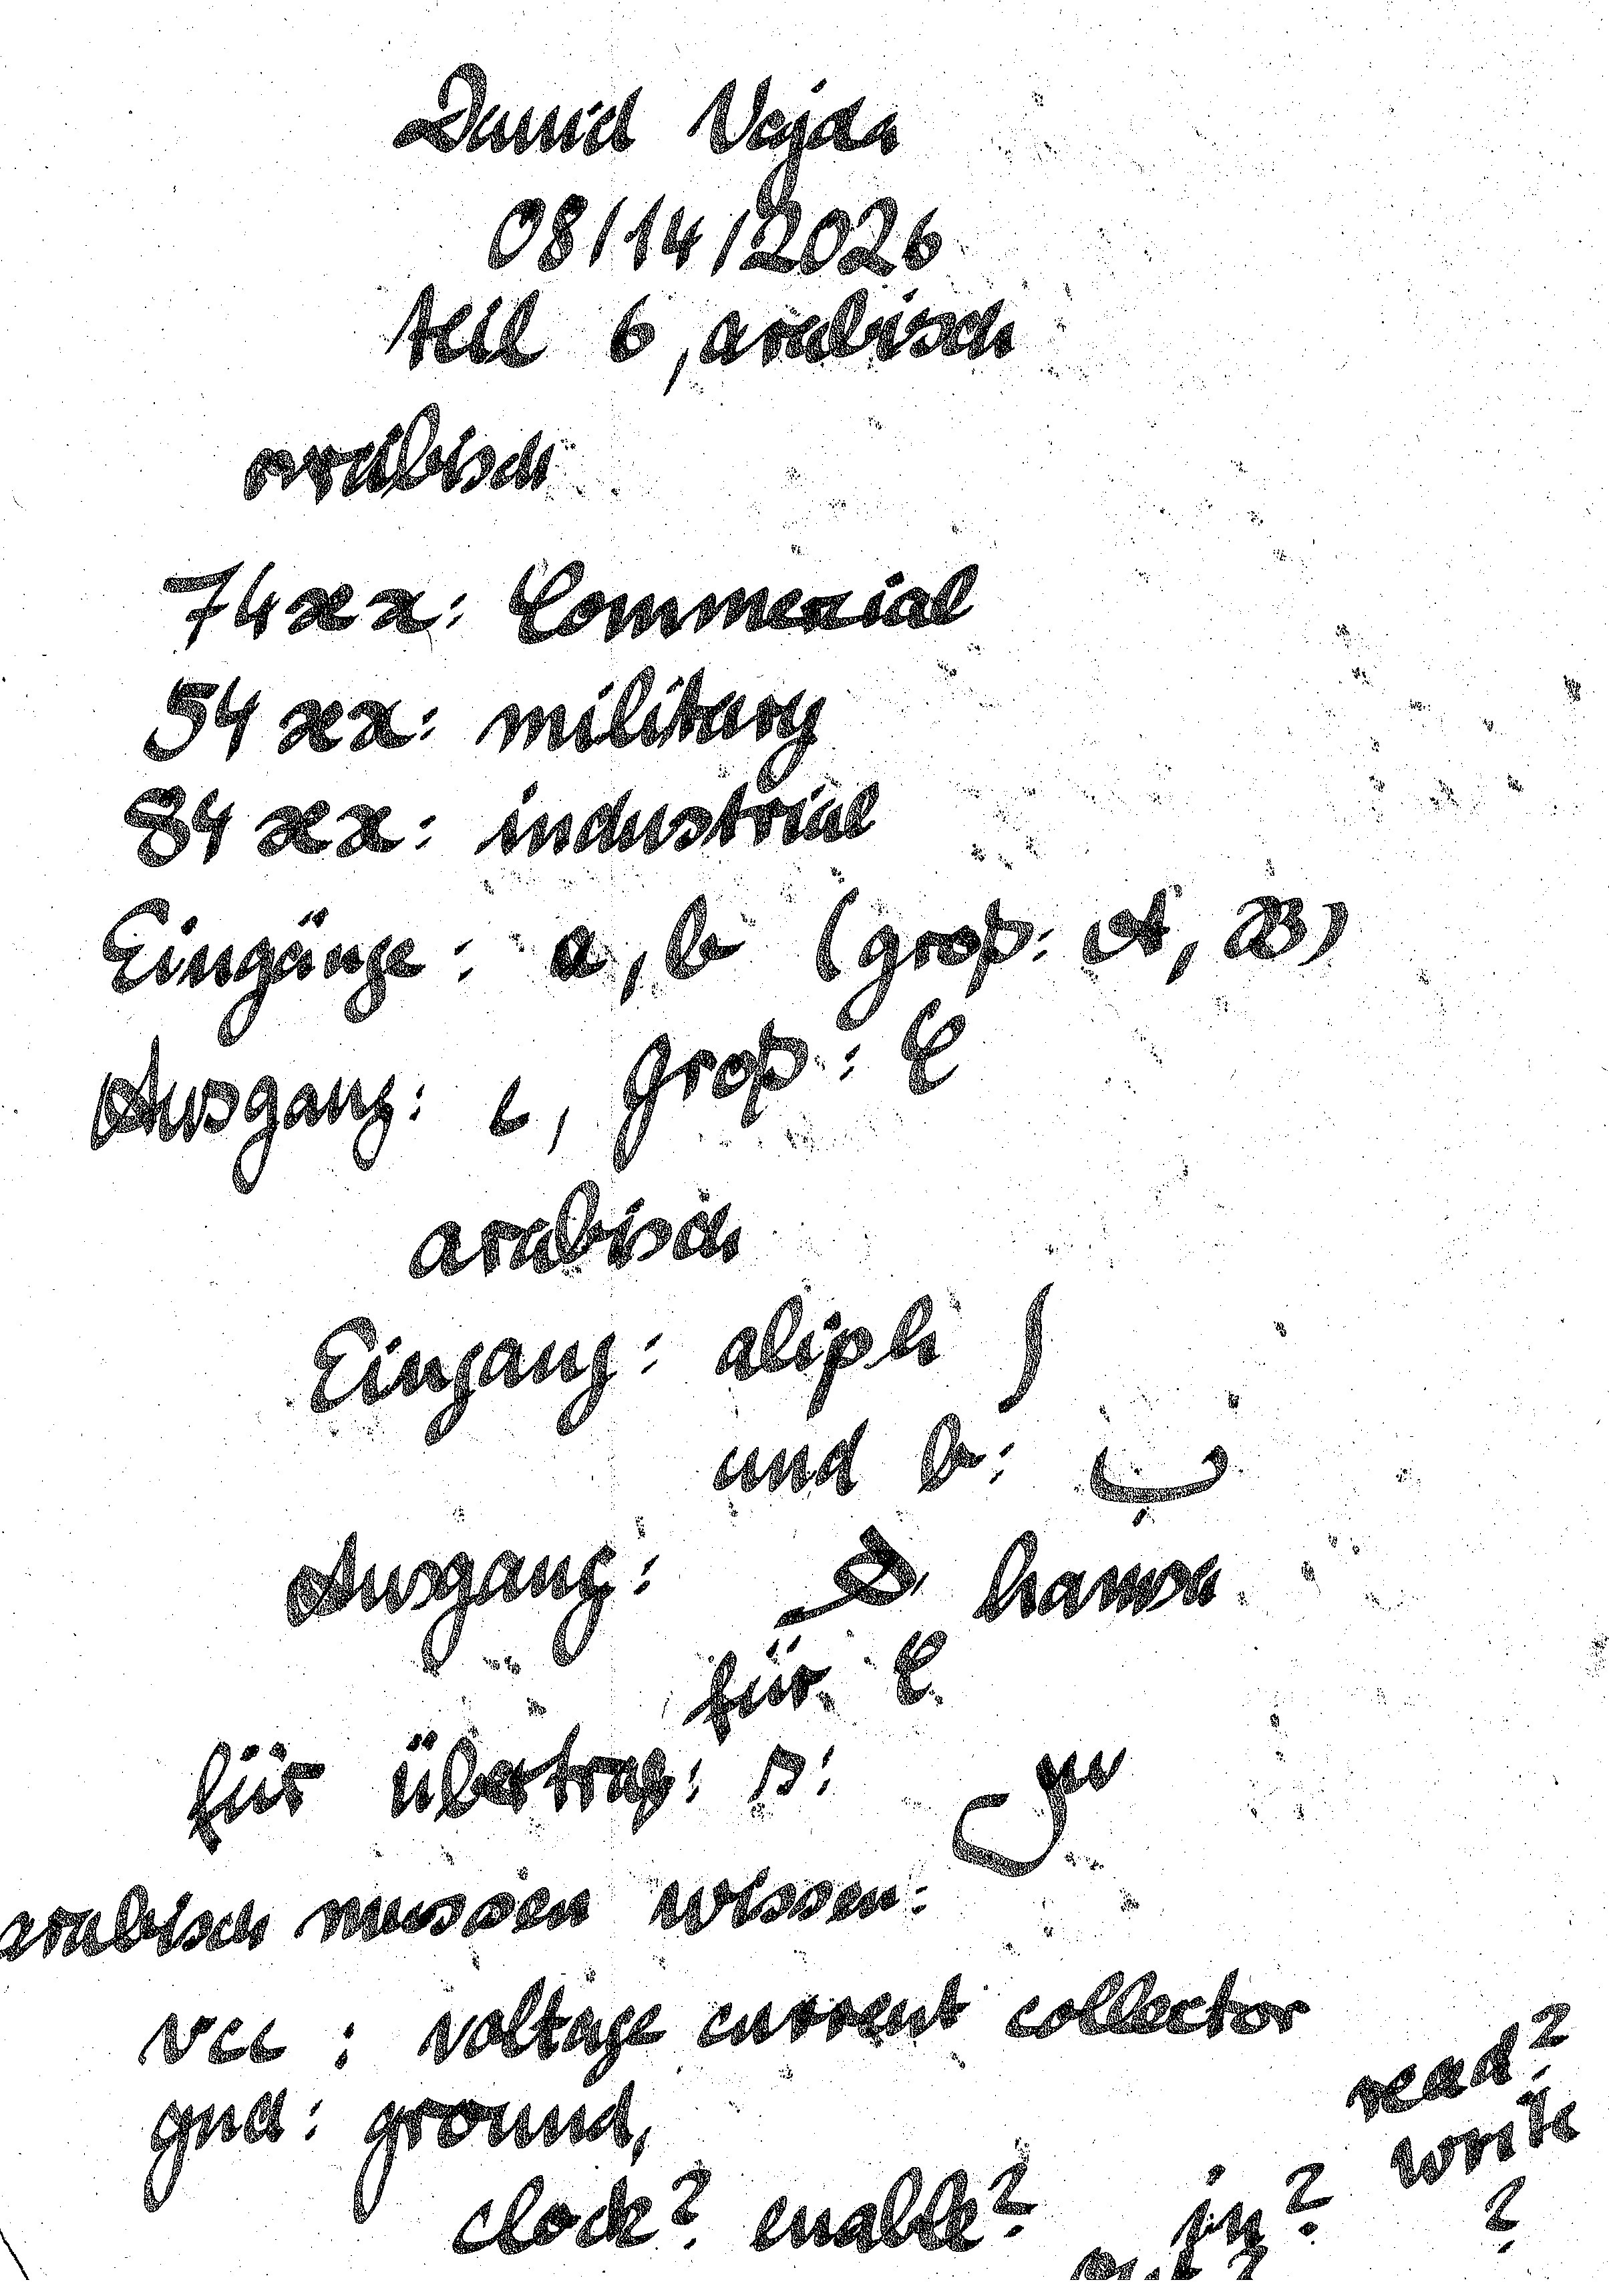 David Vajda
08/14/2026
teil 6, arabisch
arabisch
74xx: Commercial
54xx: military
84xx: industrial
Eingänge: a, b (groß: A, B)
Ausgang: c, groß: C
arabisch
Eingang: aliph ا
und b: ب
Ausgang: hamsa
für C
für übertrag: s: س
arabisch müssen wissen:
vcc: voltage current collector
gnd: ground,
clock? enable? in? out?
read?
write
?